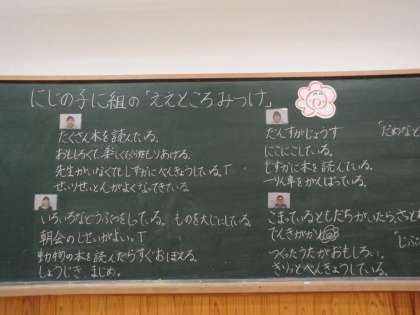 にじの子に組の「ええところみっけ」
たくさん本を読んでいる。
おもしろくて楽しくもりあげる。
先生がいなくてもしずかにべんきょうしている。T
せいりせいとんがよくなってきている。
だんすがじょうず
にこにこしている。
しずかに本を読んでいる。
一りん車をがんばっている。
「だめなと
いろいろなどうぶつをしている。ものを大じにしている。
朝会のしせいがよい。T
動物の本を読んだらすぐおぼえる。
しょうじき、まじめ。
こまっているともだちがいたら
てんきがかり
つくったうたがおもしろい。
きりっとべんきょうしている。
「じぶ